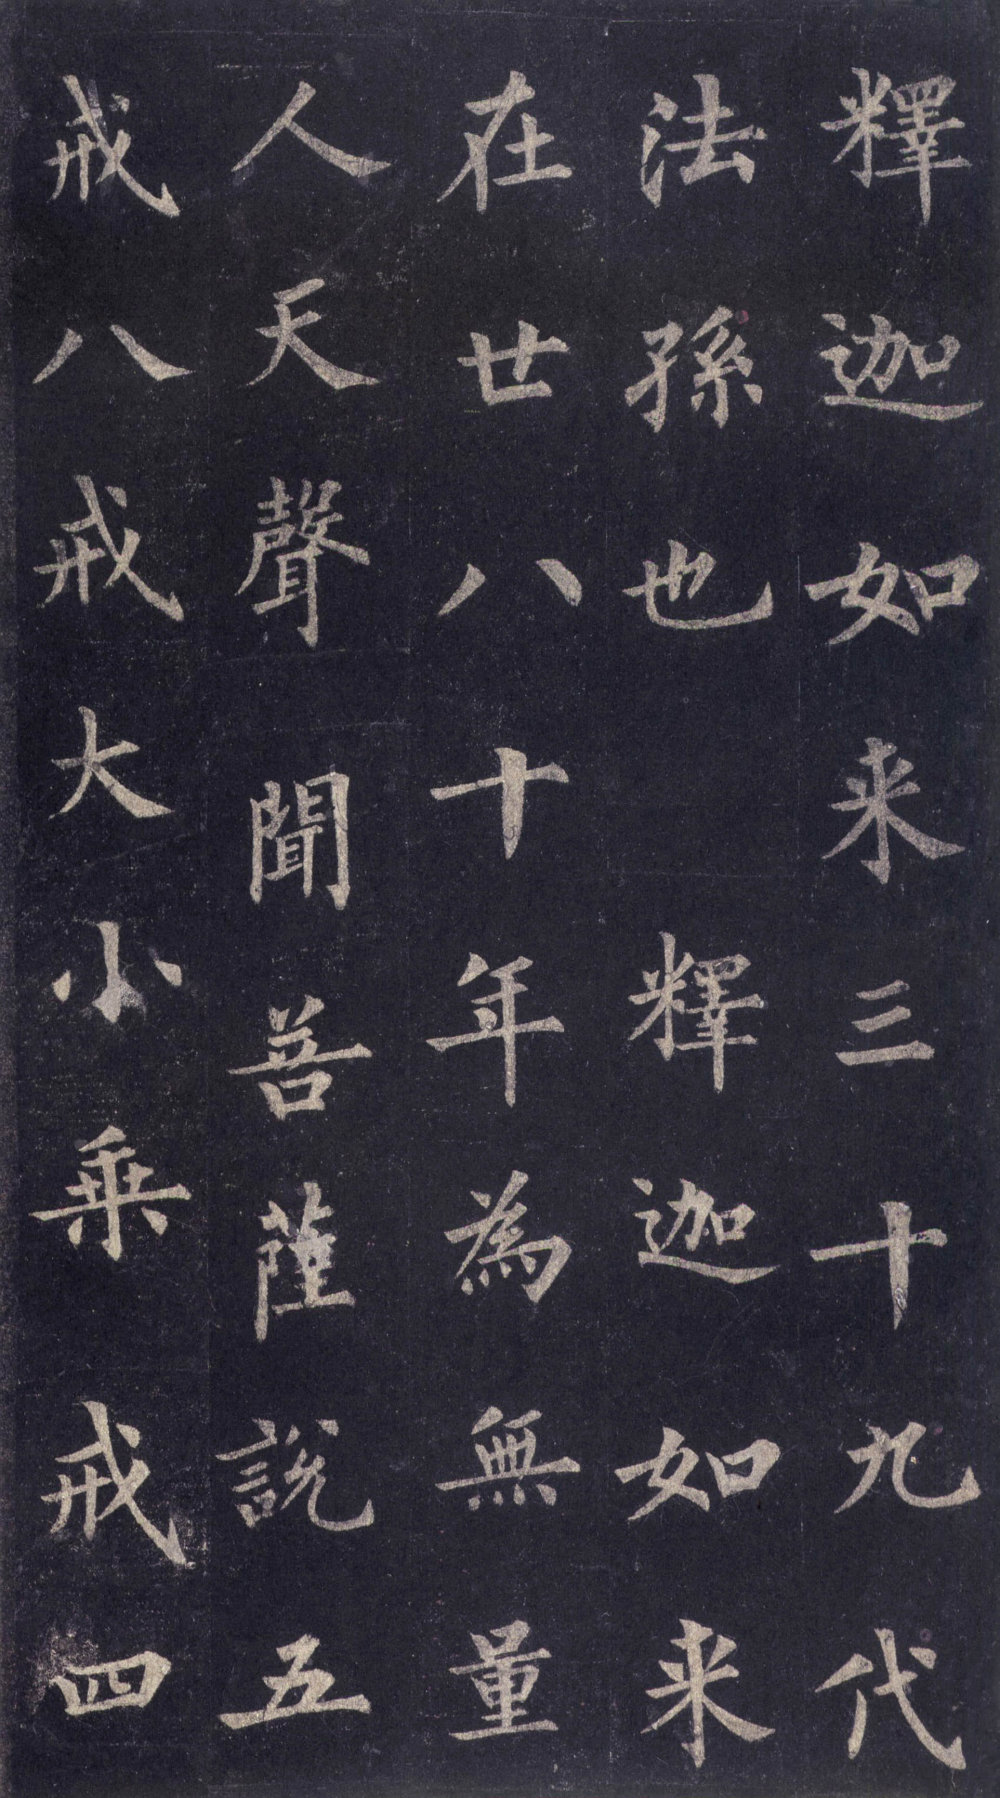 釋迦如来三十九代
法孫也　釋迦如来
在世八十年為無量
人天聲聞菩薩說五
戒八戒大小乘戒四